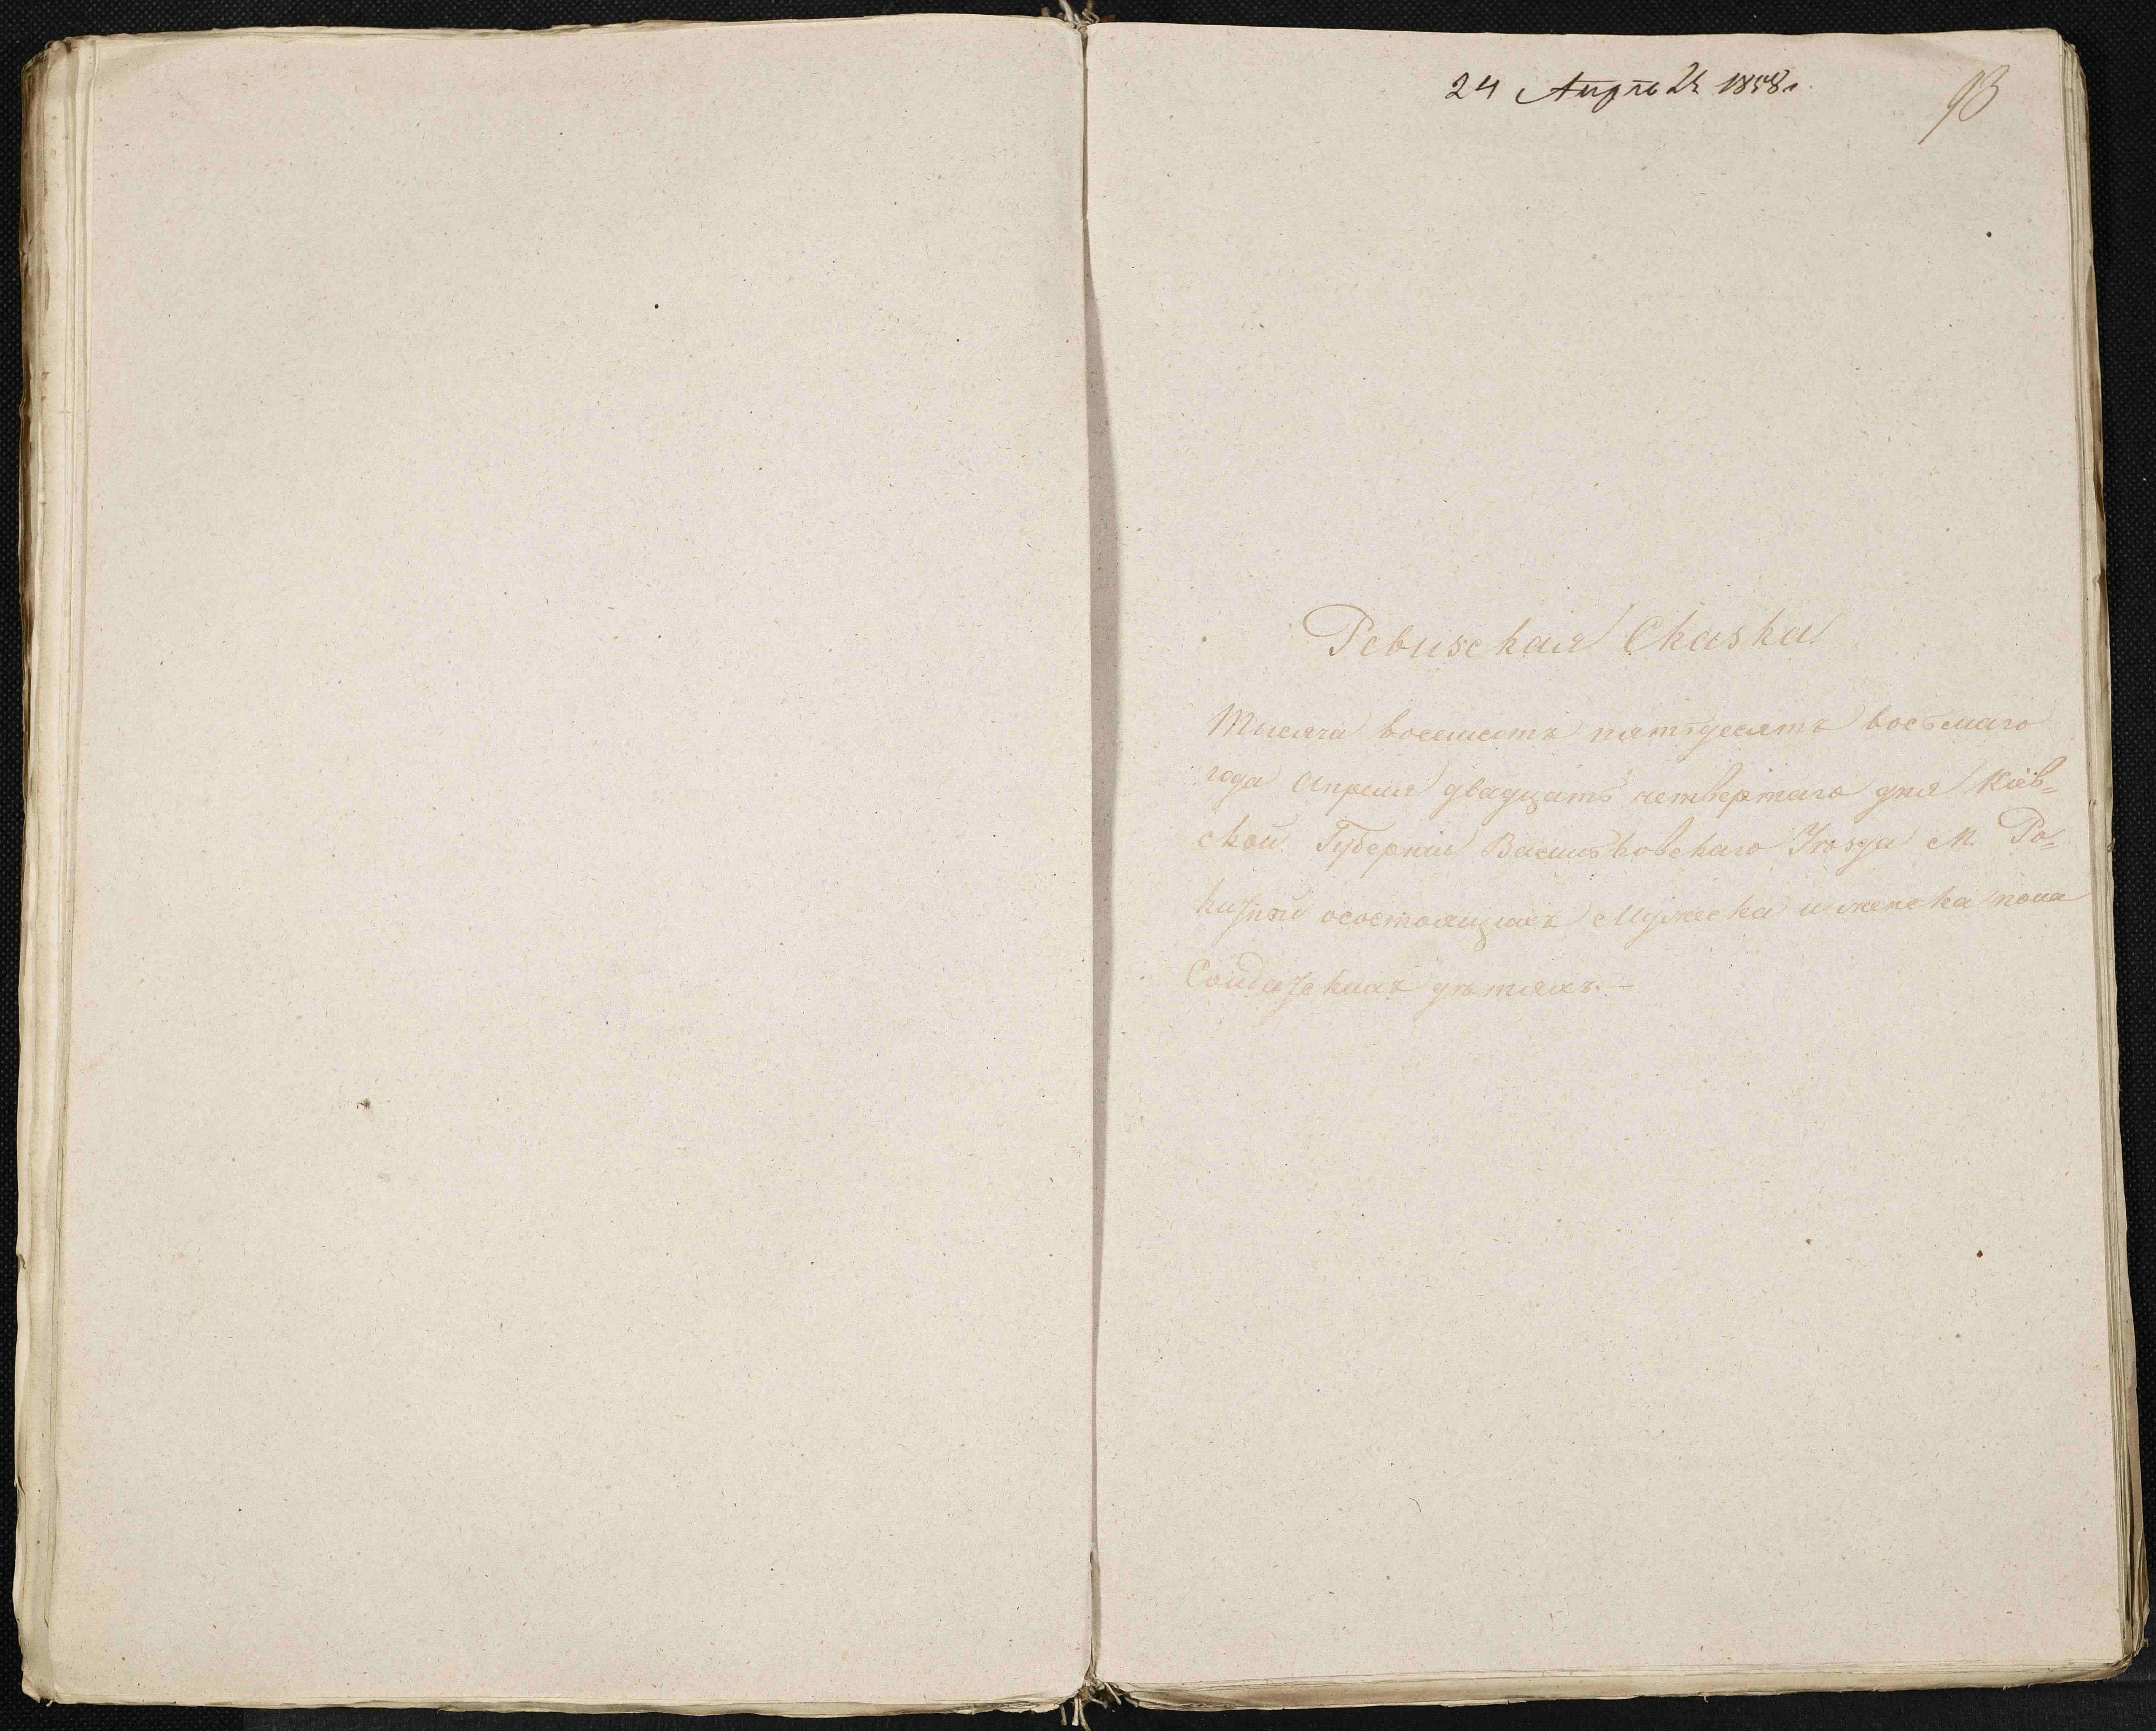 24 Апрѣля 1858 г.
93
Ревизская Сказка
Тысяча восемсотъ пятьдесятъ восьмаго
года Апреля двадцать четвертаго дня Кіев=
ской Губерніи Васильковскаго Уѣзда М. Ро=
китни осостоящихъ Мужеска и женска пола
Солдатскихъ дѣтяхъ. —